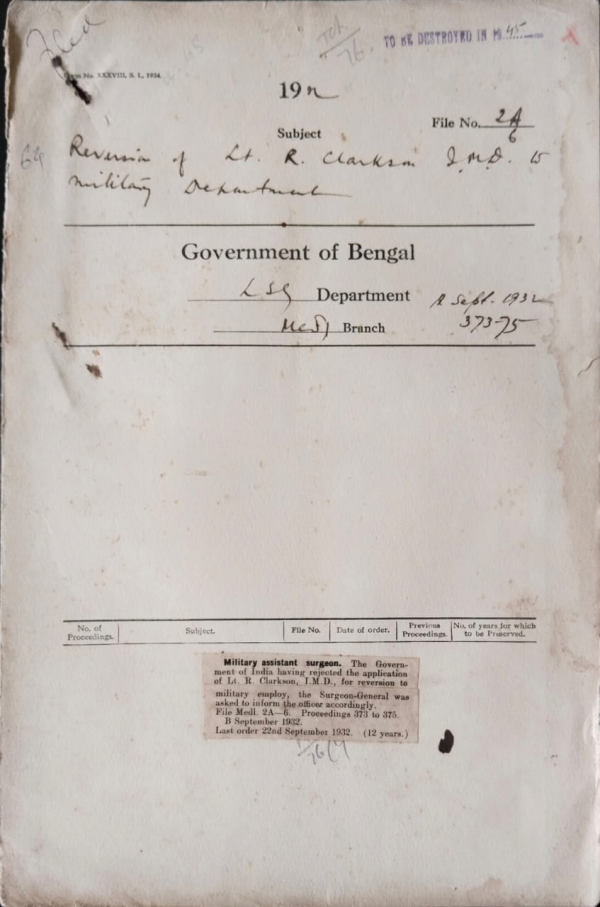 Filed
TO BE DESTROYED IN 1945
Form No. XXXVIII, S. I., 1934.
1932
File No. 2A/6
Subject
64
Reversion of Lt. R. Clarkson I.M.D. to
military Department
Government of Bengal
LSG Department B Sept. 1932
Medl Branch 373-75
No. of Proceedings. Subject. File No. Date of order. Previous Proceedings. No. of years for which to be Preserved.
Military assistant surgeon. The Govern-
ment of India having rejected the application
of Lt. R. Clarkson, I.M.D., for reversion to
military employ, the Surgeon-General was
asked to inform the officer accordingly.
File Medl. 2A—6. Proceedings 373 to 375.
B September 1932.
Last order 22nd September 1932. (12 years.)